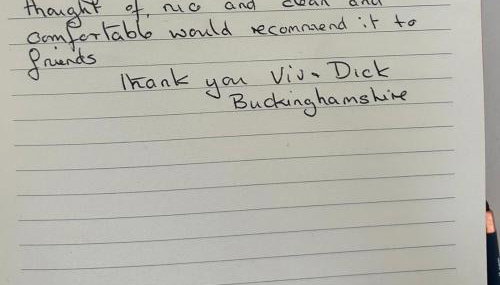 thought of, nic and clean and
comfortable would recommend it to
friends
Thank you Viv. Dick
Buckinghamshire